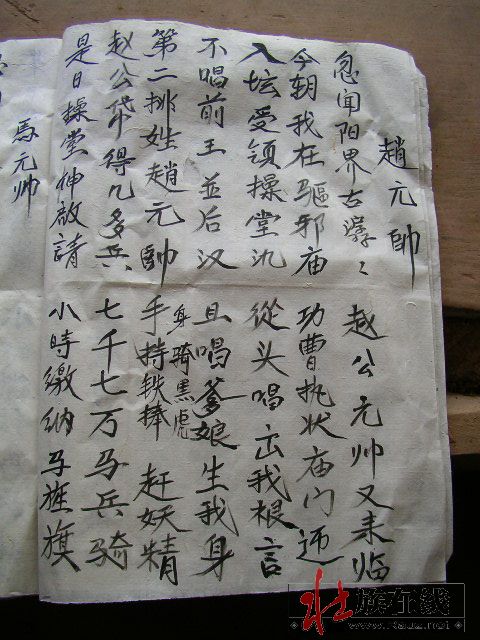 趙元帥
忽闻阳界古潺〻 赵公元帅又来临
今朝我在驱邪庙 功曹执状庙门迊
入坛受领操堂氿 從头唱出我根言
不唱前王並后汉 且唱爹娘生我身
第二排姓趙元帥 手持铁捧赶妖精
身骑黑虎
赵公帶得几多兵 七千七万马兵骑
是日操堂神啟請 小時缴纳马旌旗
馬元帅
壮族在线